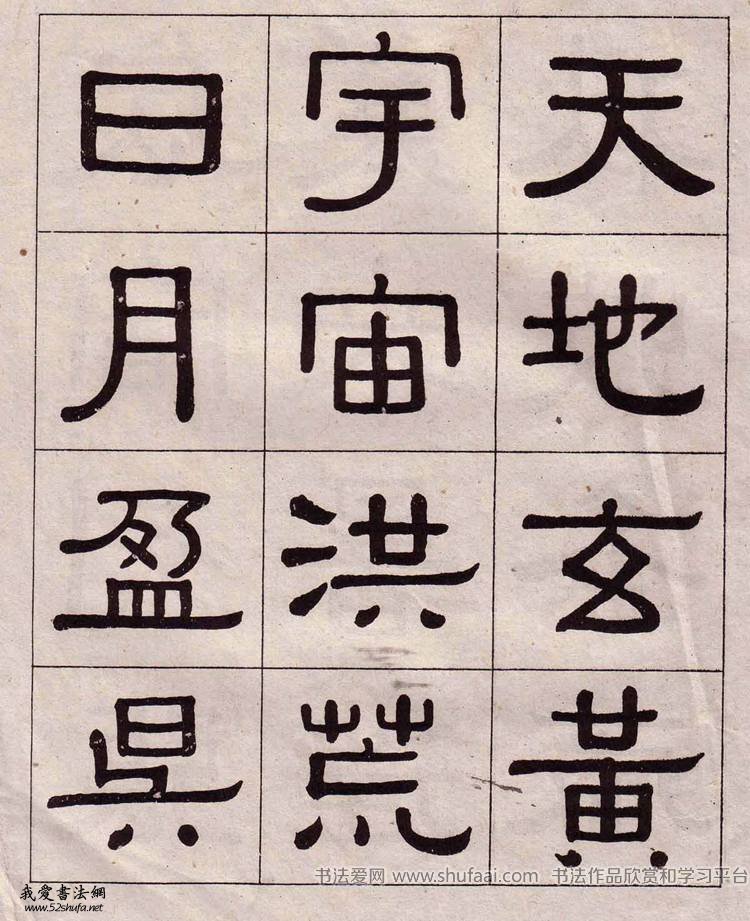 天地玄黃
宇宙洪荒
日月盈昃
我愛書法網
www.52shufa.net
书法爱网 www.shufaai.com 书法作品欣赏和学习平台